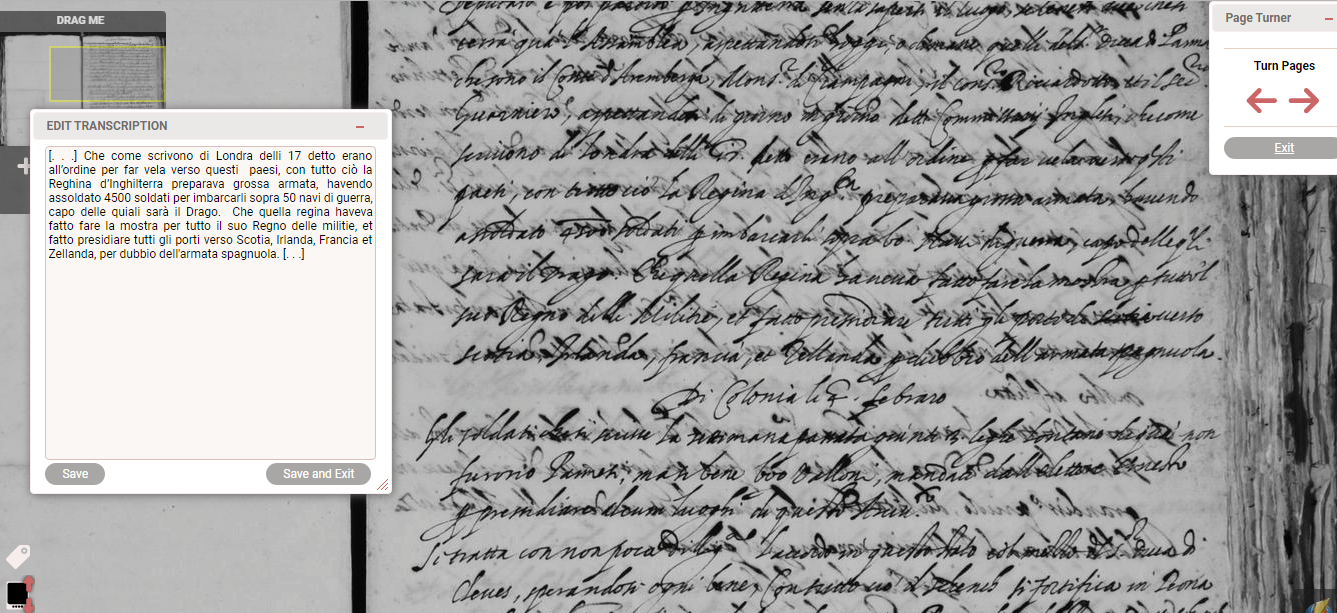 DRAG ME
EDIT TRANSCRIPTION
[. . .] Che come scrivono di Londra delli 17 detto erano
all'ordine per far vela verso questi paesi, con tutto ciò la
Reghina d'Inghilterra preparava grossa armata, havendo
assoldato 4500 soldati per imbarcarli sopra 50 navi di guerra,
capo delle quiali sarà il Drago. Che quella regina haveva
fatto fare la mostra per tutto il suo Regno delle militie, et
fatto presidiare tutti gli porti verso Scotia, Irlanda, Francia et
Zellanda, per dubbio dell'armata spagnuola. [. . .]
Save
Save and Exit
Page Turner
Turn Pages
Exit
verrà qua l'Assamblea, aspettandosi hoggi, o domane quelli del Duca di Parma
che sono il Conte d'Aremberga, Mons.r di Ciampagni, il
Guarniero, aspettandosi di giorno in giorno delli Commissarij Inglesi, che come
scrivono di Londra delli 17 detto erano all'ordine p far vela verso q.sti
paesi, con tutto ciò la Regina d'Ing.ra preparava grossa armata, havendo
assoldato 4500 soldati p imbarcarli sopra 50 navi di guerra, capo delle q.li
sarà il Drago. Che quella Regina haveva fatto fare la mostra p tutto il
suo Regno delle Militie, et fatto presidiare tutti gli porti verso
Scotia, Irlanda, Francia, et Zellanda p dubbio dell'armata spagnuola.
Di Colonia li 4. Febraro
Gli soldati scrisse la settimana passata lontano di qua non
furono ma si bene 600 Valloni, mandati dall'elettore Ernesto
p presidiare alcuni luoghi di questo
Si tratta con non poca dilig.a l'accordo in questo stato col mezzo del S.r Duca di
Cleves, sperandosi ogni bene, Con tutto ciò si fortifica in Bona